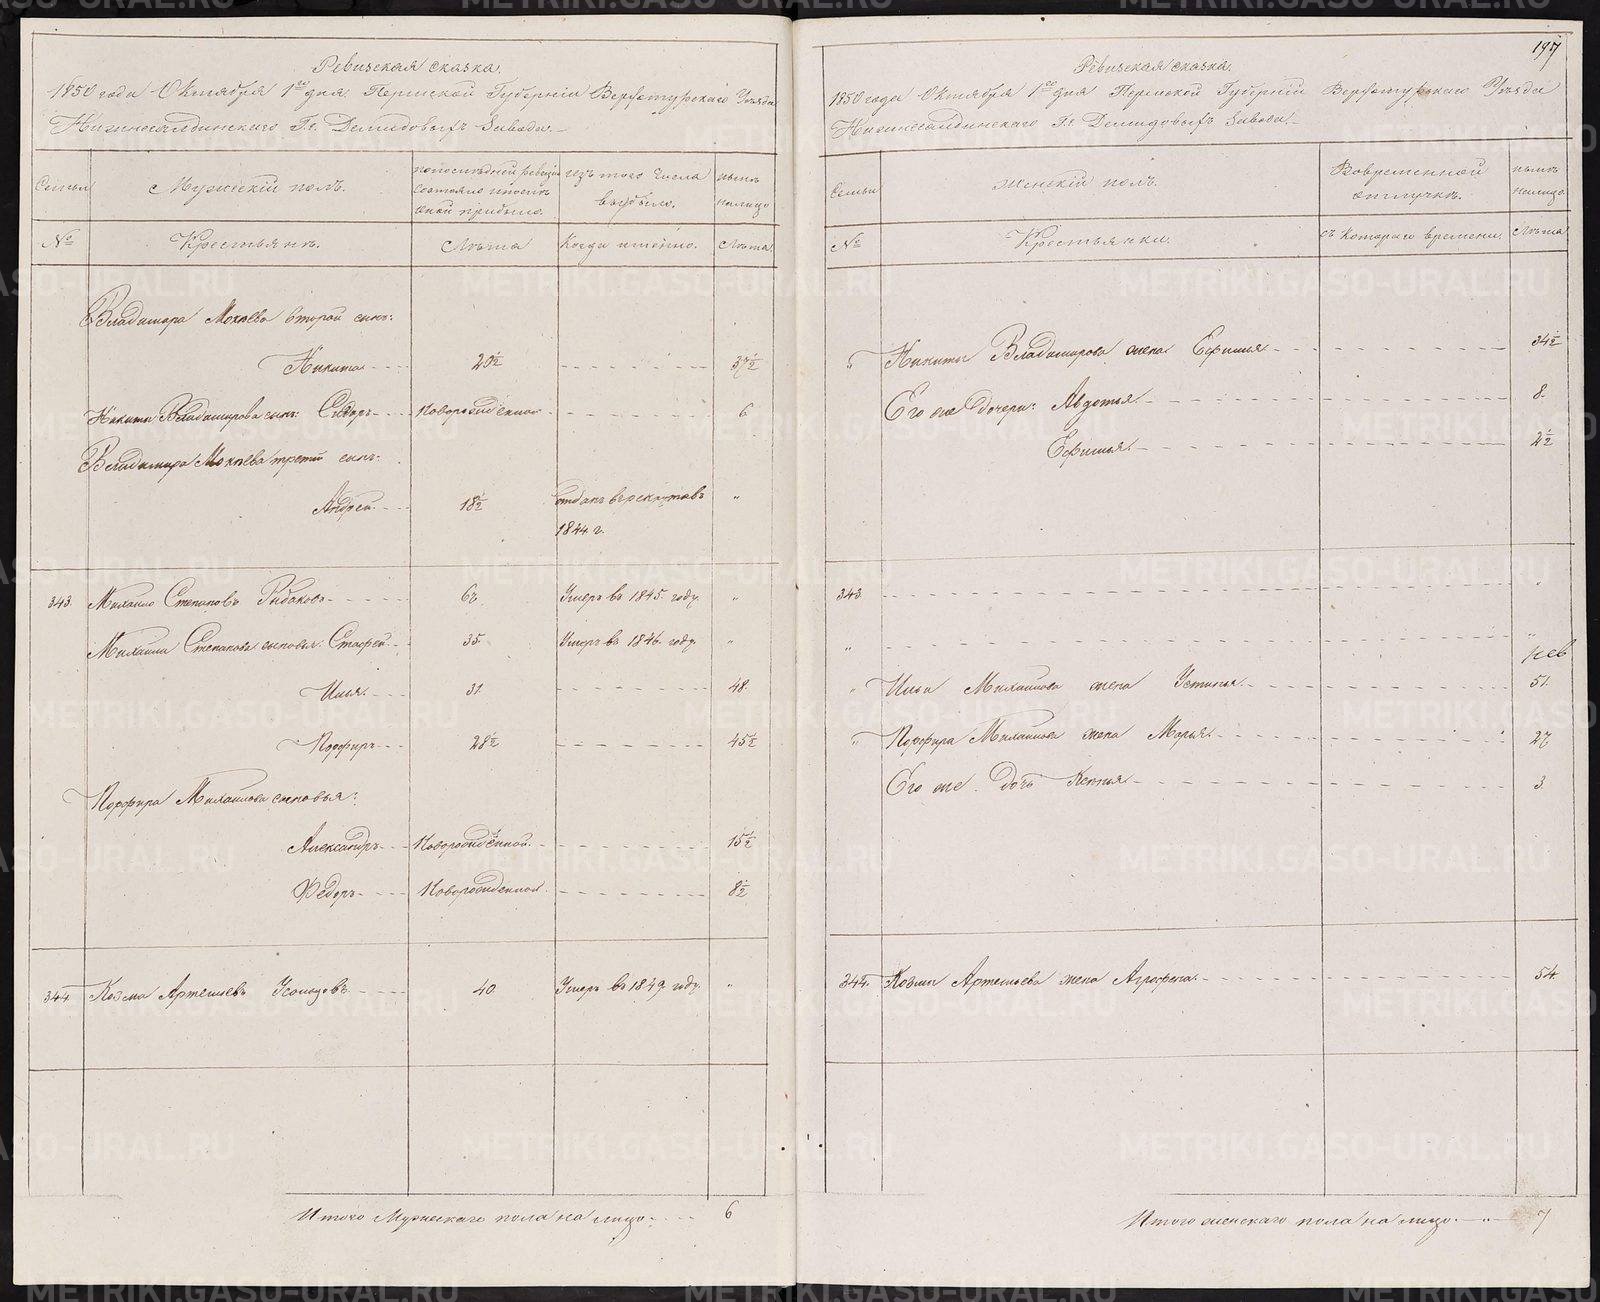 Ревизская сказка.
1850 года Октября 1го дня Пермской Губерніи Верхотурскаго Уѣзда
Нижнесалдинскаго Г.г. Демидовыхъ Завода.
Семьи
Мужескій полъ.
по послѣдней ревизіи
состояло и послѣ
оной прибыло.
изъ того числа
выбыло.
нынѣ
налицо
№
Крестьянъ.
Лѣта
Когда именно.
Лѣта
Владимира Мокѣева второй сынъ:
Никита 29½ 37½
Никиты Владимирова сынъ: Сидоръ Новорожденной 6
Владимира Мокѣева третій сынъ:
Андрей 18½ отданъ въ рекруты въ "
1844 г.
343. Михайло Степановъ Рыбаковъ 62. Умеръ въ 1845. году. "
Михаила Степанова сыновья: Стафей 35. Умеръ въ 1846. году. "
Илья 31. 48.
Порфиръ 28½ 45½
Порфира Михайлова сыновья:
Александръ Новорожденной. 15½
Федоръ Новорожденной 8½
344. Козма Артемьевъ 40. Умеръ въ 1849. году. "
Итого Мужескаго пола на лицо 6
197
Ревизская сказка.
1850 года Октября 1го дня Пермской Губерніи Верхотурскаго Уѣзда
Нижнесалдинскаго Г.г. Демидовыхъ Завода.
Семьи
Женскій полъ.
Вовременной
отлучкѣ.
нынѣ
налицо
№
Крестьянки.
съ Котораго времени.
Лѣта
" Никиты Владимирова жена Ефимья 34½
Его же дочери: Авдотья 8.
Ефимья 2½
343. "
" "
" Ильи Михайлова жена Устинья 51.
" Порфира Михайлова жена Марья 27
Его же дочь Ксенья 3.
344. Козмы Артемьева жена Агрофена 54.
Итого женскаго пола на лицо " 7
METRIKI.GASO-URAL.RU